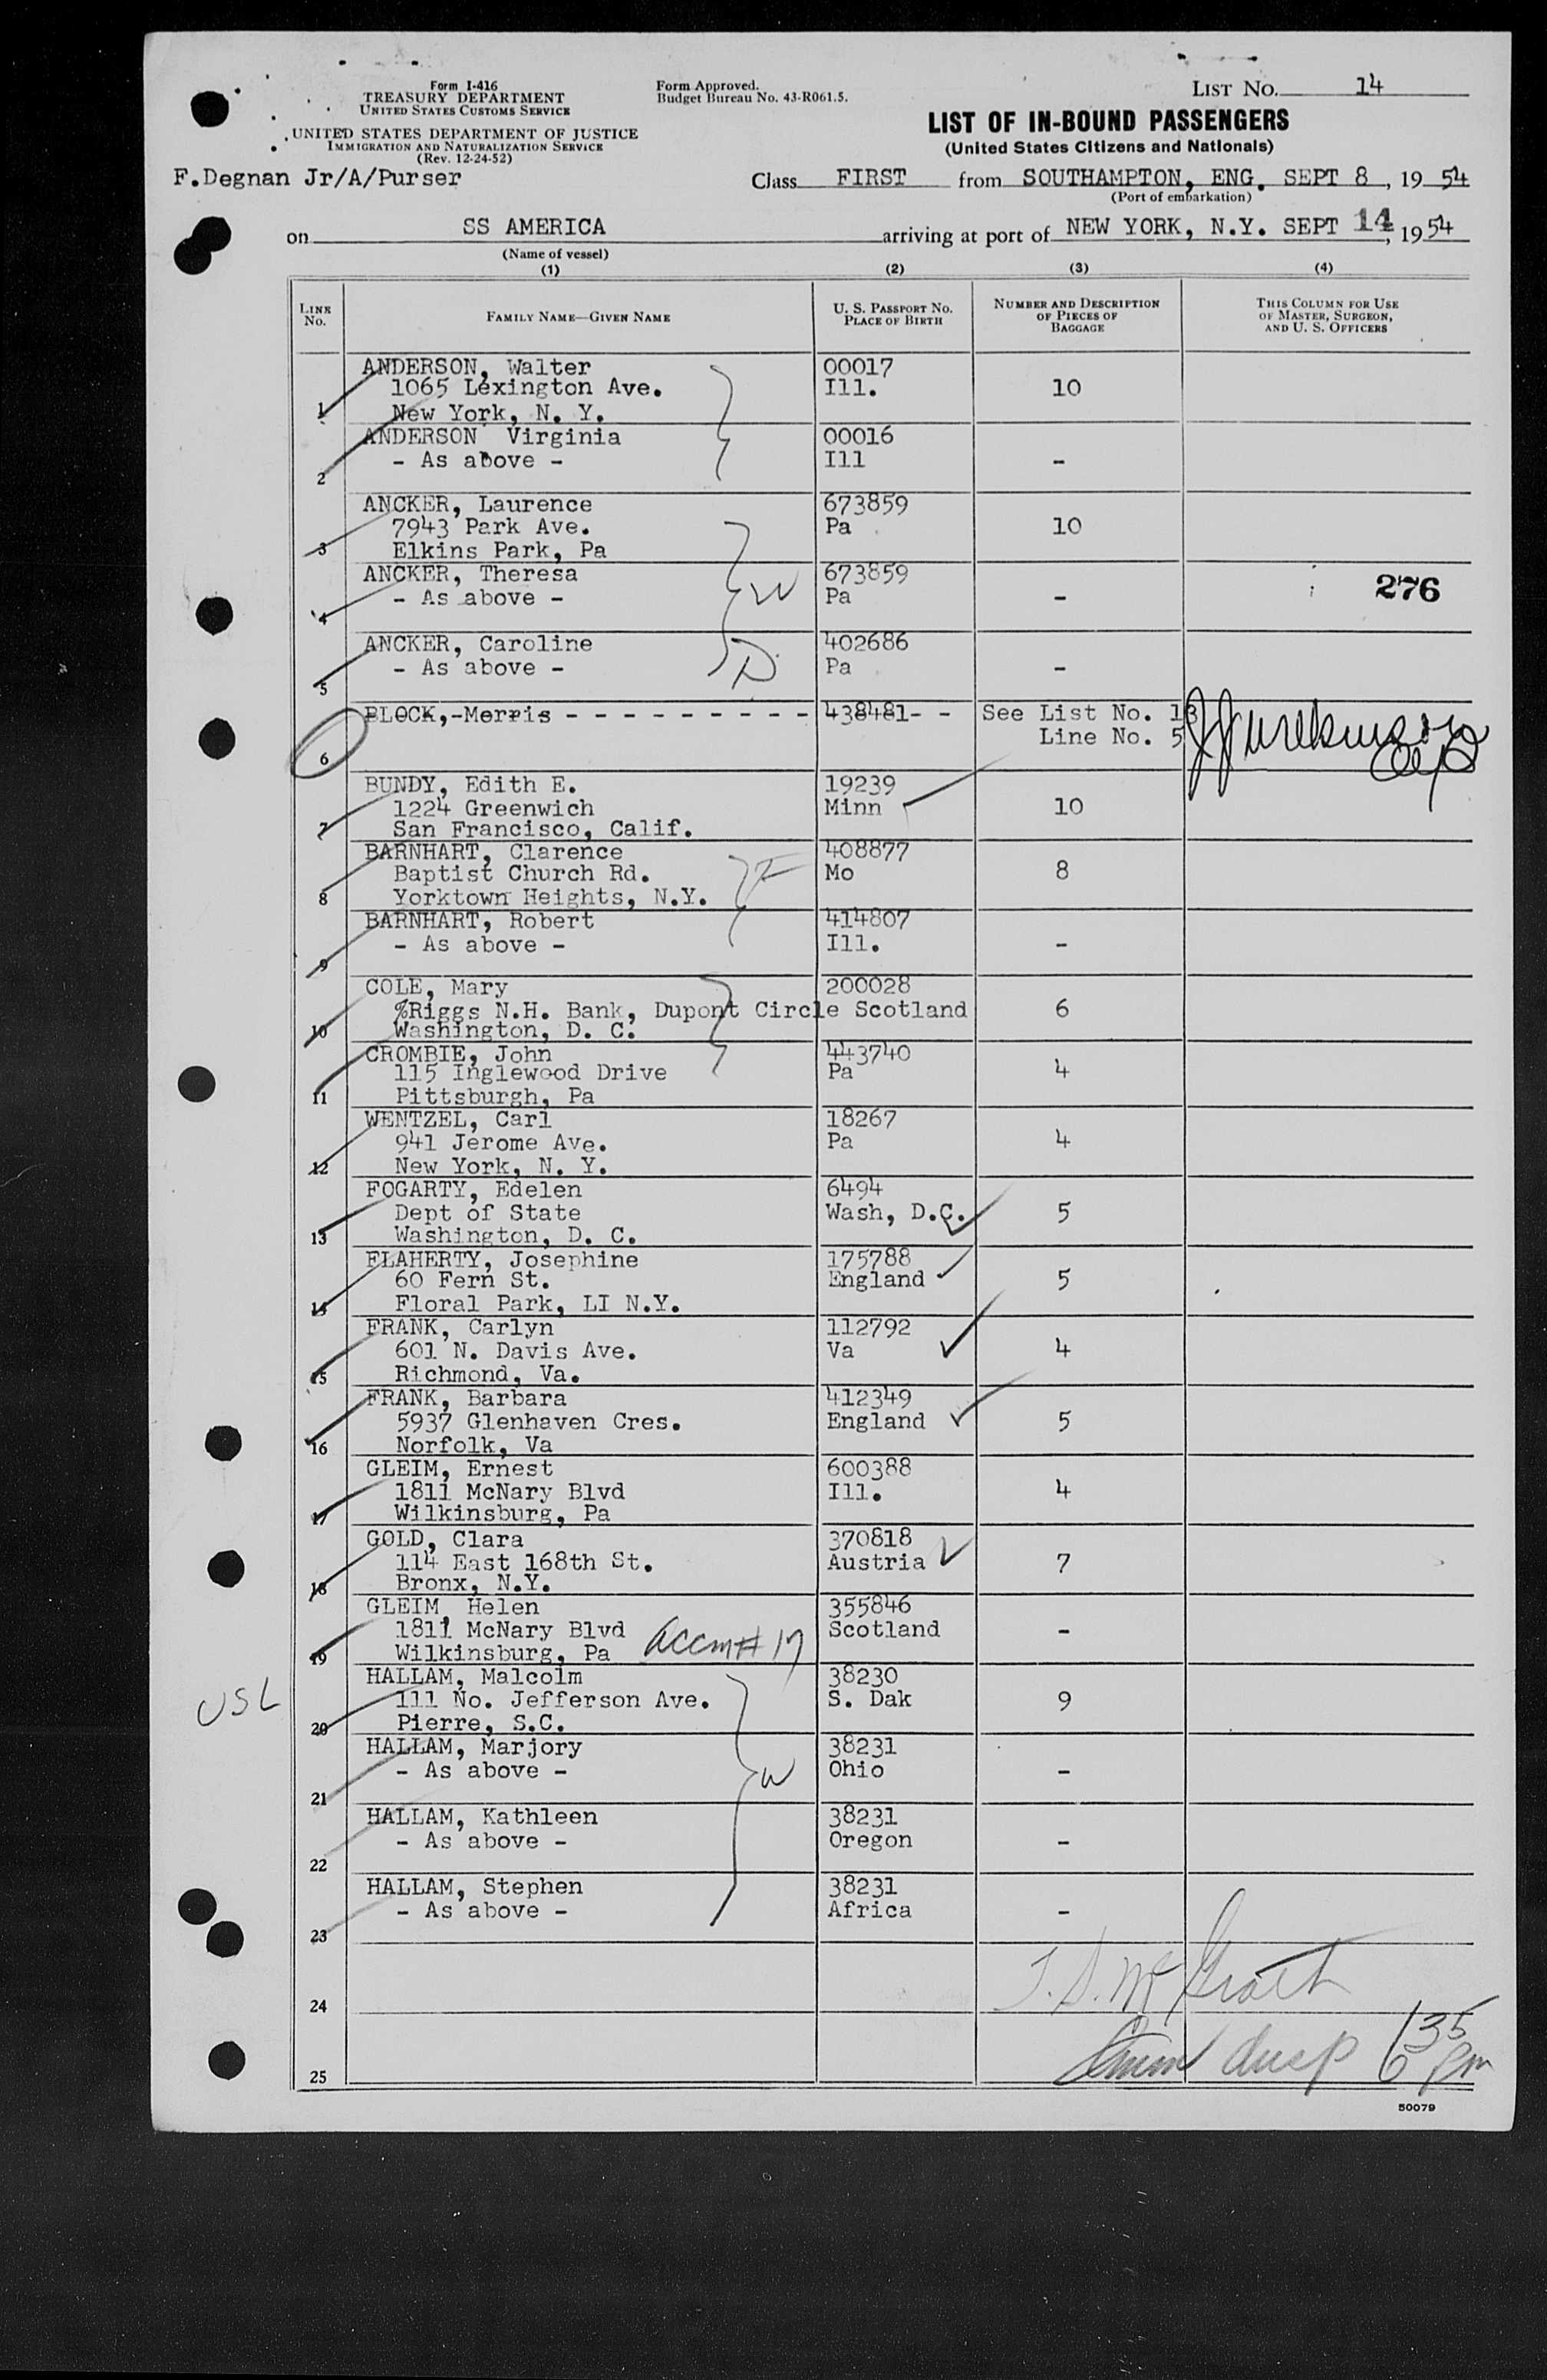 Form I-416
TREASURY DEPARTMENT
UNITED STATES CUSTOMS SERVICE
UNITED STATES DEPARTMENT OF JUSTICE
IMMIGRATION AND NATURALIZATION SERVICE
(Rev. 12-24-52)
Form Approved.
Budget Bureau No. 43-R061.5.
LIST No. 14
LIST OF IN-BOUND PASSENGERS
(United States Citizens and Nationals)
F.Degnan Jr/A/Purser
Class FIRST from SOUTHAMPTON, ENG. SEPT 8, 19 54
(Port of embarkation)
on SS AMERICA arriving at port of NEW YORK, N.Y. SEPT 14, 19 54
(Name of vessel)
(1) (2) (3) (4)
LINE No. FAMILY NAME—GIVEN NAME U. S. PASSPORT No. PLACE OF BIRTH NUMBER AND DESCRIPTION OF PIECES OF BAGGAGE THIS COLUMN FOR USE OF MASTER, SURGEON, AND U. S. OFFICERS
ANDERSON, Walter 00017
1065 Lexington Ave. Ill. 10
1 New York, N. Y.
ANDERSON Virginia 00016
- As above - Ill -
2
ANCKER, Laurence 673859
7943 Park Ave. Pa 10
3 Elkins Park, Pa
ANCKER, Theresa 673859 276
- As above - W Pa -
4
ANCKER, Caroline 402686
- As above - D Pa -
5
BLOCK,-Morris - - - - - - - - - 438481- - See List No. 13
Line No. 5
6
BUNDY, Edith E. 19239
1224 Greenwich Minn 10
7 San Francisco, Calif.
BARNHART, Clarence 408877
Baptist Church Rd. F Mo 8
8 Yorktown Heights, N.Y.
BARNHART, Robert 414807
- As above - Ill. -
9
COLE, Mary 200028
%Riggs N.H. Bank, Dupont Circle Scotland 6
10 Washington, D. C.
CROMBIE, John 443740
115 Inglewood Drive Pa 4
11 Pittsburgh, Pa
WENTZEL, Carl 18267
941 Jerome Ave. Pa 4
12 New York, N. Y.
FOGARTY, Edelen 6494
Dept of State Wash, D.C. 5
13 Washington, D. C.
FLAHERTY, Josephine 175788
60 Fern St. England 5
14 Floral Park, LI N.Y.
FRANK, Carlyn 112792
601 N. Davis Ave. Va 4
15 Richmond, Va.
FRANK, Barbara 412349
5937 Glenhaven Cres. England 5
16 Norfolk, Va
GLEIM, Ernest 600388
1811 McNary Blvd Ill. 4
17 Wilkinsburg, Pa
GOLD, Clara 370818
114 East 168th St. Austria 7
18 Bronx, N.Y.
GLEIM, Helen 355846
1811 McNary Blvd Scotland -
19 Wilkinsburg, Pa accm # 17
HALLAM, Malcolm 38230
USL 111 No. Jefferson Ave. S. Dak 9
20 Pierre, S.C.
HALLAM, Marjory 38231
- As above - W Ohio -
21
HALLAM, Kathleen 38231
- As above - Oregon -
22
HALLAM, Stephen 38231
- As above - Africa -
23
T. S. McGrath
24
6 35 pm
25
50079